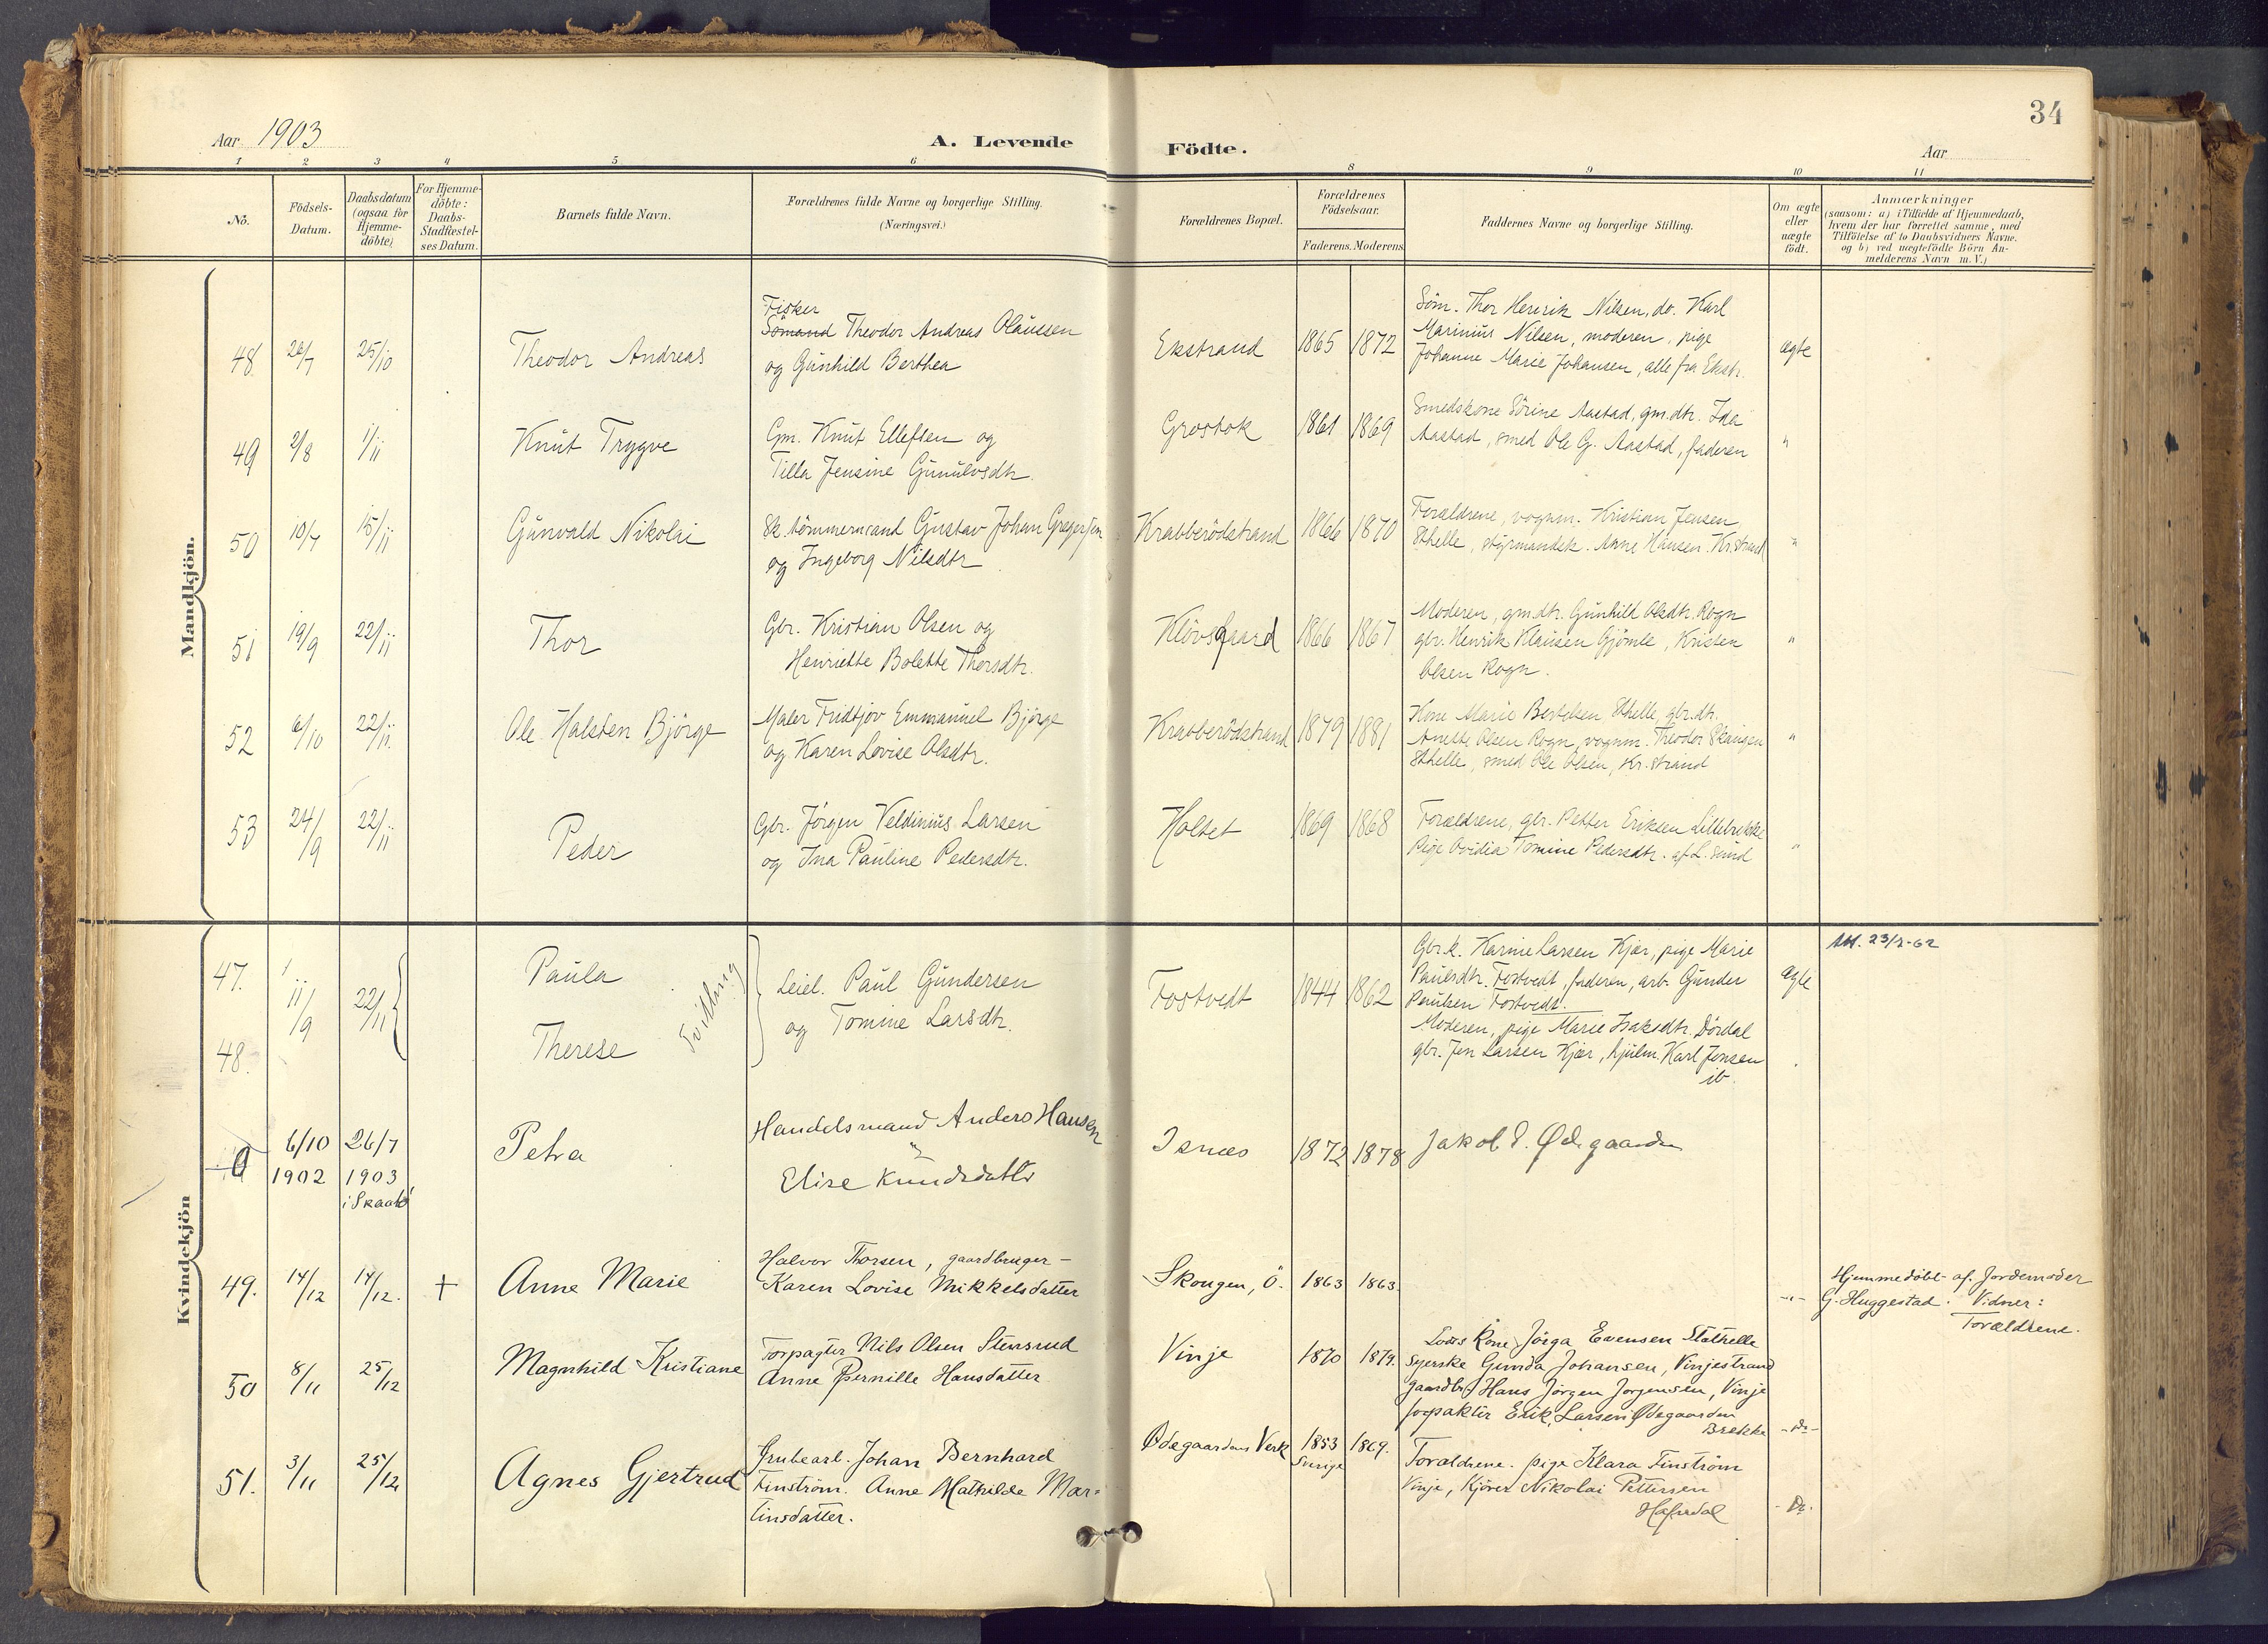 34
Aar 1903
A. Levende Födte.
Aar
1 2 3 4 5 6 8 9 10 11
No.
Födsels-
Datum.
Daabsdatum
(ogsaa for
Hjemme-
döbte)
For Hjemme-
döbte:
Daabs-
Stadfæstel-
ses Datum.
Barnets fulde Navn.
Forældrenes fulde Navne og borgerlige Stilling.
(Næringsvei.)
Forældrenes Bopæl.
Forældrenes
Födselsaar.
Faderens. Moderens.
Faddernes Navne og borgerlige Stilling.
Om ægte
eller
uægte
födt.
Anmærkninger
(saasom: a) i Tilfælde af Hjemmedaab,
hvem der har forrettet samme, med
Tilföielse af to Daabsvidners Navne.
og b) ved uægtefödte Börn An-
melderens Navn m. V.)
Mandkjön.
48 26/7 25/10
Theodor Andreas
Fisker
Sömand Theodor Andreas Olaussen
og Gunhild Berthea
Ekstrand 1865 1872
Söm. Thor Henrik Nilsen, do. Karl
Marinius Nilsen, moderen, pige
Johanne Marie Johansen, alle fra Ekstr.
ægte
49 2/8 1/11
Knut Trygve
Gm. Knut Ellefsen og
Tilla Jensine Gunulvsdtr.
Grostok 1861 1869
Smedskone Sörine Aastad, gm.dtr. Ida
Aastad, smed Ole G. Aastad, faderen
"
50 10/7 15/11
Gunvald Nikolai
Sk.tömmermand Gustav Johan Gregersen
og Ingeborg Nilsdtr
Krabberödstrand 1866 1870
Forældrene, vognm. Kristian Jensen
Sthelle, styrmandsk. Anne Hansen Kr.strand
"
51 19/9 22/11
Thor
Gbr. Kristian Olsen og
Henriette Bolette Thorsdtr.
Klövsgaard 1866 1867
Moderen, gm.dtr. Gunhild Olsdtr. Rogn
gbr. Henrik Klausen Gjömle, Kristen
Olsen Rogn.
"
52 6/10 22/11
Ole Halsten Björge
Maler Fridtjov Emmanuel Björge
og Karen Lovise Olsdtr.
Krabberödstrand 1879 1881
Kone Marie Bertelsen Sthelle, gbr.dtr.
Anette Olsen Rogn, vognm. Theodor Skaugen
Sthelle, smed Ole Olsen, Kr.strand
"
53 24/9 22/11
Peder
Gbr. Jörgen Veldinius Larsen
og Ina Pauline Pedersdtr.
Holtet 1869 1868
Forældrene, gbr. Petter Eriksen Lillebrække
Pige Ovidia Tomine Pedersdtr. af L. Sund
"
Kvindekjön
47. 11/9 22/11
Paula
48.
Therese
Tvilling
Leiel. Paul Gundersen
og Tomine Larsdtr.
Fostvedt 1844 1862
Gbr.k. Karine Larsen Kjær, pige Marie
Paulsdtr. Fostvedt, faderen, arb. Gunder
Paulsen Fostvedt.
Moderen, pige Marie Isaksdtr. Dördal
gbr. Jen Larsen Kjær, hjulm. Karl Jensen
ib.
ægte
23/2-62
6/10 26/7
1902 1903
i Skaatö
Petra
Handelsmand Anders Hansen
Elise Knudsdatter
Isnæs 1872 1878
Jakob E. Ødegaarden
49. 14/12 14/12. +
Anne Marie
Halvor Thorsen, gaardbruger -
Karen Lovise Mikkelsdatter
Skougen, Ö. 1863 1863.
-"-
Hjemmedöbt af Jordemoder
G. Huggestad. Vidner:
Forældrene.
50 8/11 25/12
Magnhild Kristiane
Forpagter Nils Olsen Stensrud
Anne Pernille Hansdatter
Vinje 1870 1879.
Lods Kone Jörga Evensen Stathelle
syerske Gunda Johansen, Vinjestrand
gaardbr. Hans Jörgen Jorgensen, Vinje
forpakter Erik Larsen Ødegaarden
Brekka
-Do-
51. 3/11 25/12
Agnes Gjertrud
Grubearb. Johan Bernhard
Finström. Anne Mathilde Mar-
tinsdatter.
Ødegaardens Verk 1853 1869.
Sverige
Forældrene. pige Klara Finström
Vinje, Kjörer Nikolai Pettersen
Hafsdal
-Do.